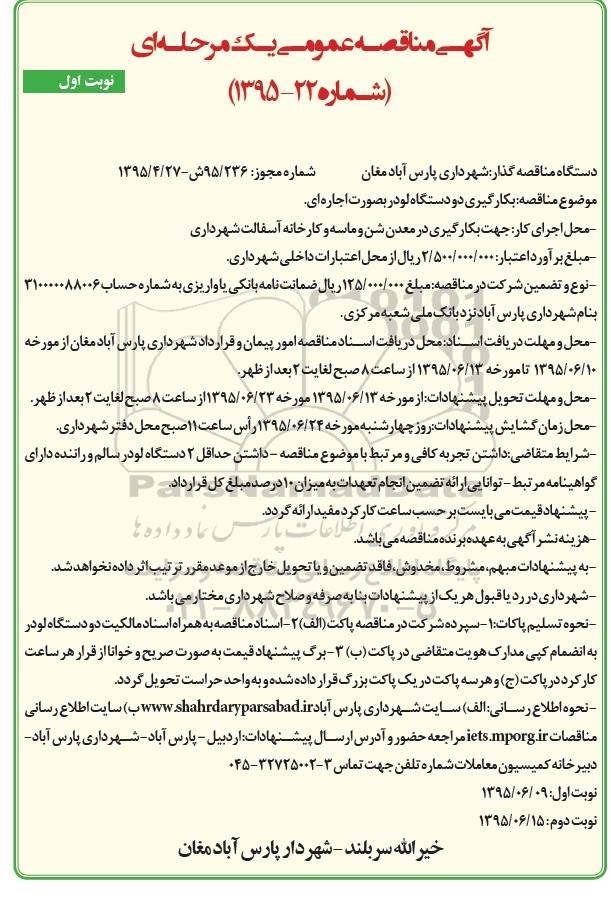 آگهی مناقصه عمومی یک مرحله‌ای
(شماره ۲۲-۱۳۹۵)
نوبت اول
دستگاه مناقصه گذار: شهرداری پارس آباد مغان شماره مجوز: ۹۵/۲۳۶ش-۱۳۹۵/۴/۲۷
موضوع مناقصه: بکارگیری دو دستگاه لودر بصورت اجاره‌ای.
-محل اجرای کار: جهت بکارگیری در معدن شن و ماسه و کارخانه آسفالت شهرداری
-مبلغ برآورد اعتبار: ۲/۵۰۰/۰۰۰/۰۰۰ ریال از محل اعتبارات داخلی شهرداری.
-نوع و تضمین شرکت در مناقصه: مبلغ ۱۲۵/۰۰۰/۰۰۰ ریال ضمانت نامه بانکی یا واریزی به شماره حساب ۳۱۰۰۰۰۰۸۸۰۰۶
بنام شهرداری پارس آباد نزد بانک ملی شعبه مرکزی.
-محل و مهلت دریافت اسناد: محل دریافت اسناد مناقصه امور پیمان و قرارداد شهرداری پارس آباد مغان از مورخه
۱۳۹۵/۰۶/۱۰ تا مورخه ۱۳۹۵/۰۶/۱۳ از ساعت ۸ صبح لغایت ۲ بعد از ظهر.
-محل و مهلت تحویل پیشنهادات: از مورخه ۱۳۹۵/۰۶/۱۳ مورخه ۱۳۹۵/۰۶/۲۳ از ساعت ۸ صبح لغایت ۲ بعد از ظهر.
-محل زمان گشایش پیشنهادات: روز چهارشنبه مورخه ۱۳۹۵/۰۶/۲۴ رأس ساعت ۱۱ صبح محل دفتر شهرداری.
-شرایط متقاضی: داشتن تجربه کافی و مرتبط با موضوع مناقصه - داشتن حداقل ۲ دستگاه لودر سالم و راننده دارای
گواهینامه مرتبط - توانایی ارائه تضمین انجام تعهدات به میزان ۱۰ درصد مبلغ کل قرارداد.
-پیشنهاد قیمت می بایست بر حسب ساعت کارکرد مفید ارائه گردد.
-هزینه نشر آگهی به عهده برنده مناقصه می باشد.
-به پیشنهادات مبهم، مشروط، مخدوش، فاقد تضمین و یا تحویل خارج از موعد مقرر ترتیب اثر داده نخواهد شد.
-شهرداری در رد یا قبول هر یک از پیشنهادات بنا به صرفه و صلاح شهرداری مختار می باشد.
-نحوه تسلیم پاکات: ۱- سپرده شرکت در مناقصه پاکت (الف) ۲- اسناد مناقصه به همراه اسناد مالکیت دو دستگاه لودر
به انضمام کپی مدارک هویت متقاضی در پاکت (ب) ۳- برگ پیشنهاد قیمت به صورت صریح و خوانا از قرار هر ساعت
کارکرد در پاکت (ج) و هر سه پاکت در یک پاکت بزرگ قرار داده شده و به واحد حراست تحویل گردد.
-نحوه اطلاع رسانی: الف) سایت شهرداری پارس آباد www.shahrdaryparsabad.ir ب) سایت اطلاع رسانی
مناقصات iets.mporg.ir مراجعه حضور و آدرس ارسال پیشنهادات: اردبیل - پارس آباد - شهرداری پارس آباد-
دبیرخانه کمیسیون معاملات شماره تلفن جهت تماس ۳-۳۲۷۲۵۰۰۲-۰۴۵
نوبت اول: ۱۳۹۵/۰۶/۰۹
نوبت دوم: ۱۳۹۵/۰۶/۱۵
خیرالله سربلند - شهردار پارس آباد مغان
ParsNamadData
مرکز فرآوری اطلاعات پارس نماد داده ها
۰۲۱-۸۸۳۴۹۶۷۰-۵